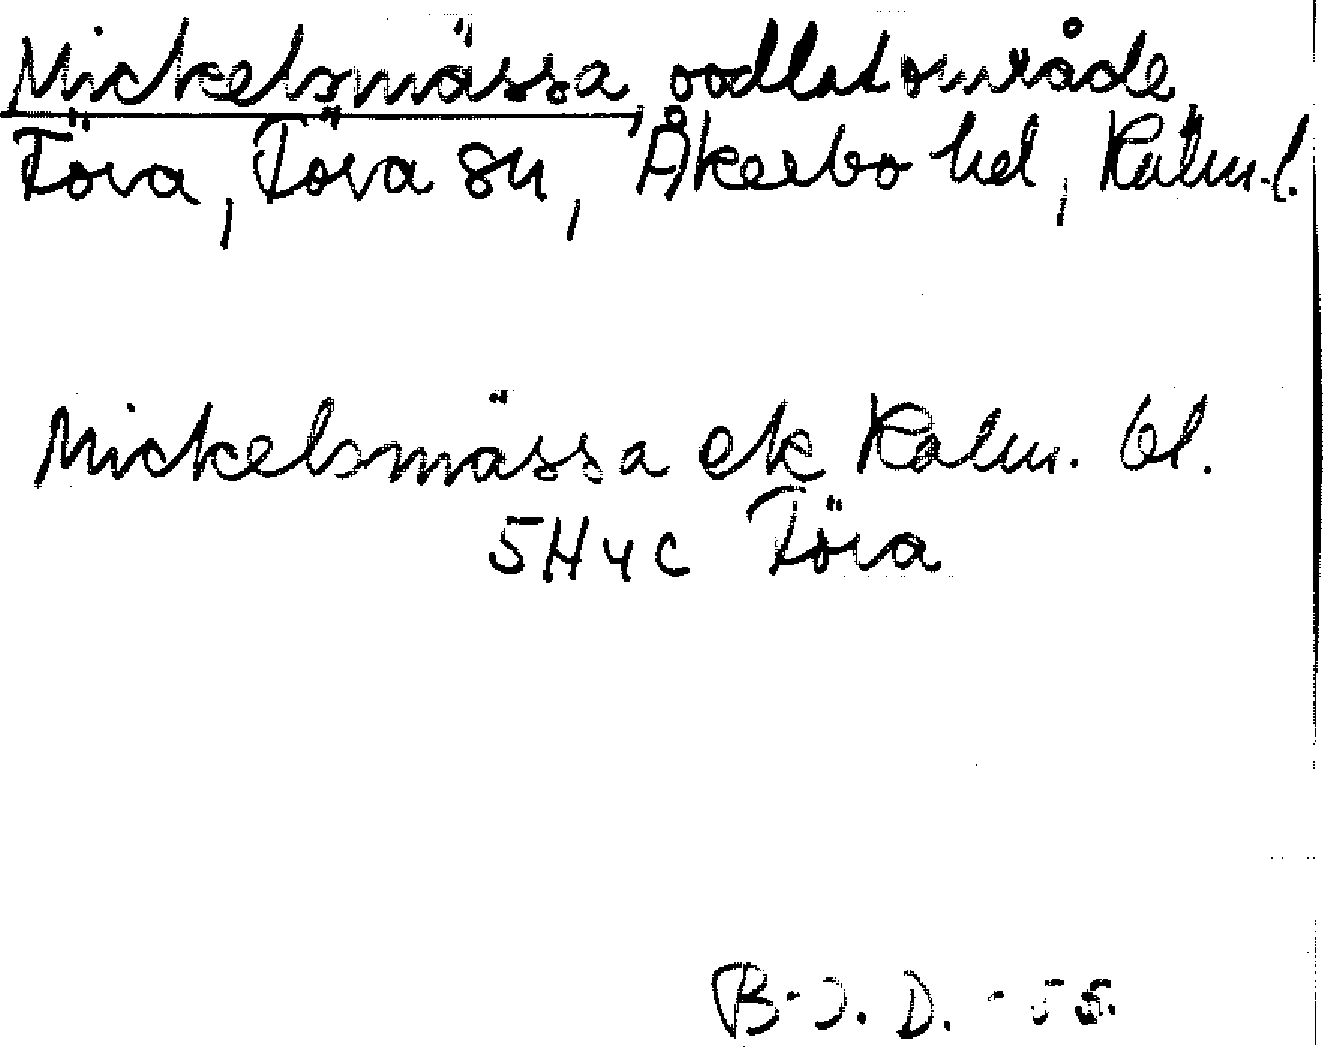 Mickelsmässa, oodlat område
Föra, Föra sn, Åkerbo hd, Kalm.l.
Mickelsmässa ek Kalm. bl.
5H4c Föra
B-J. D. - 55.